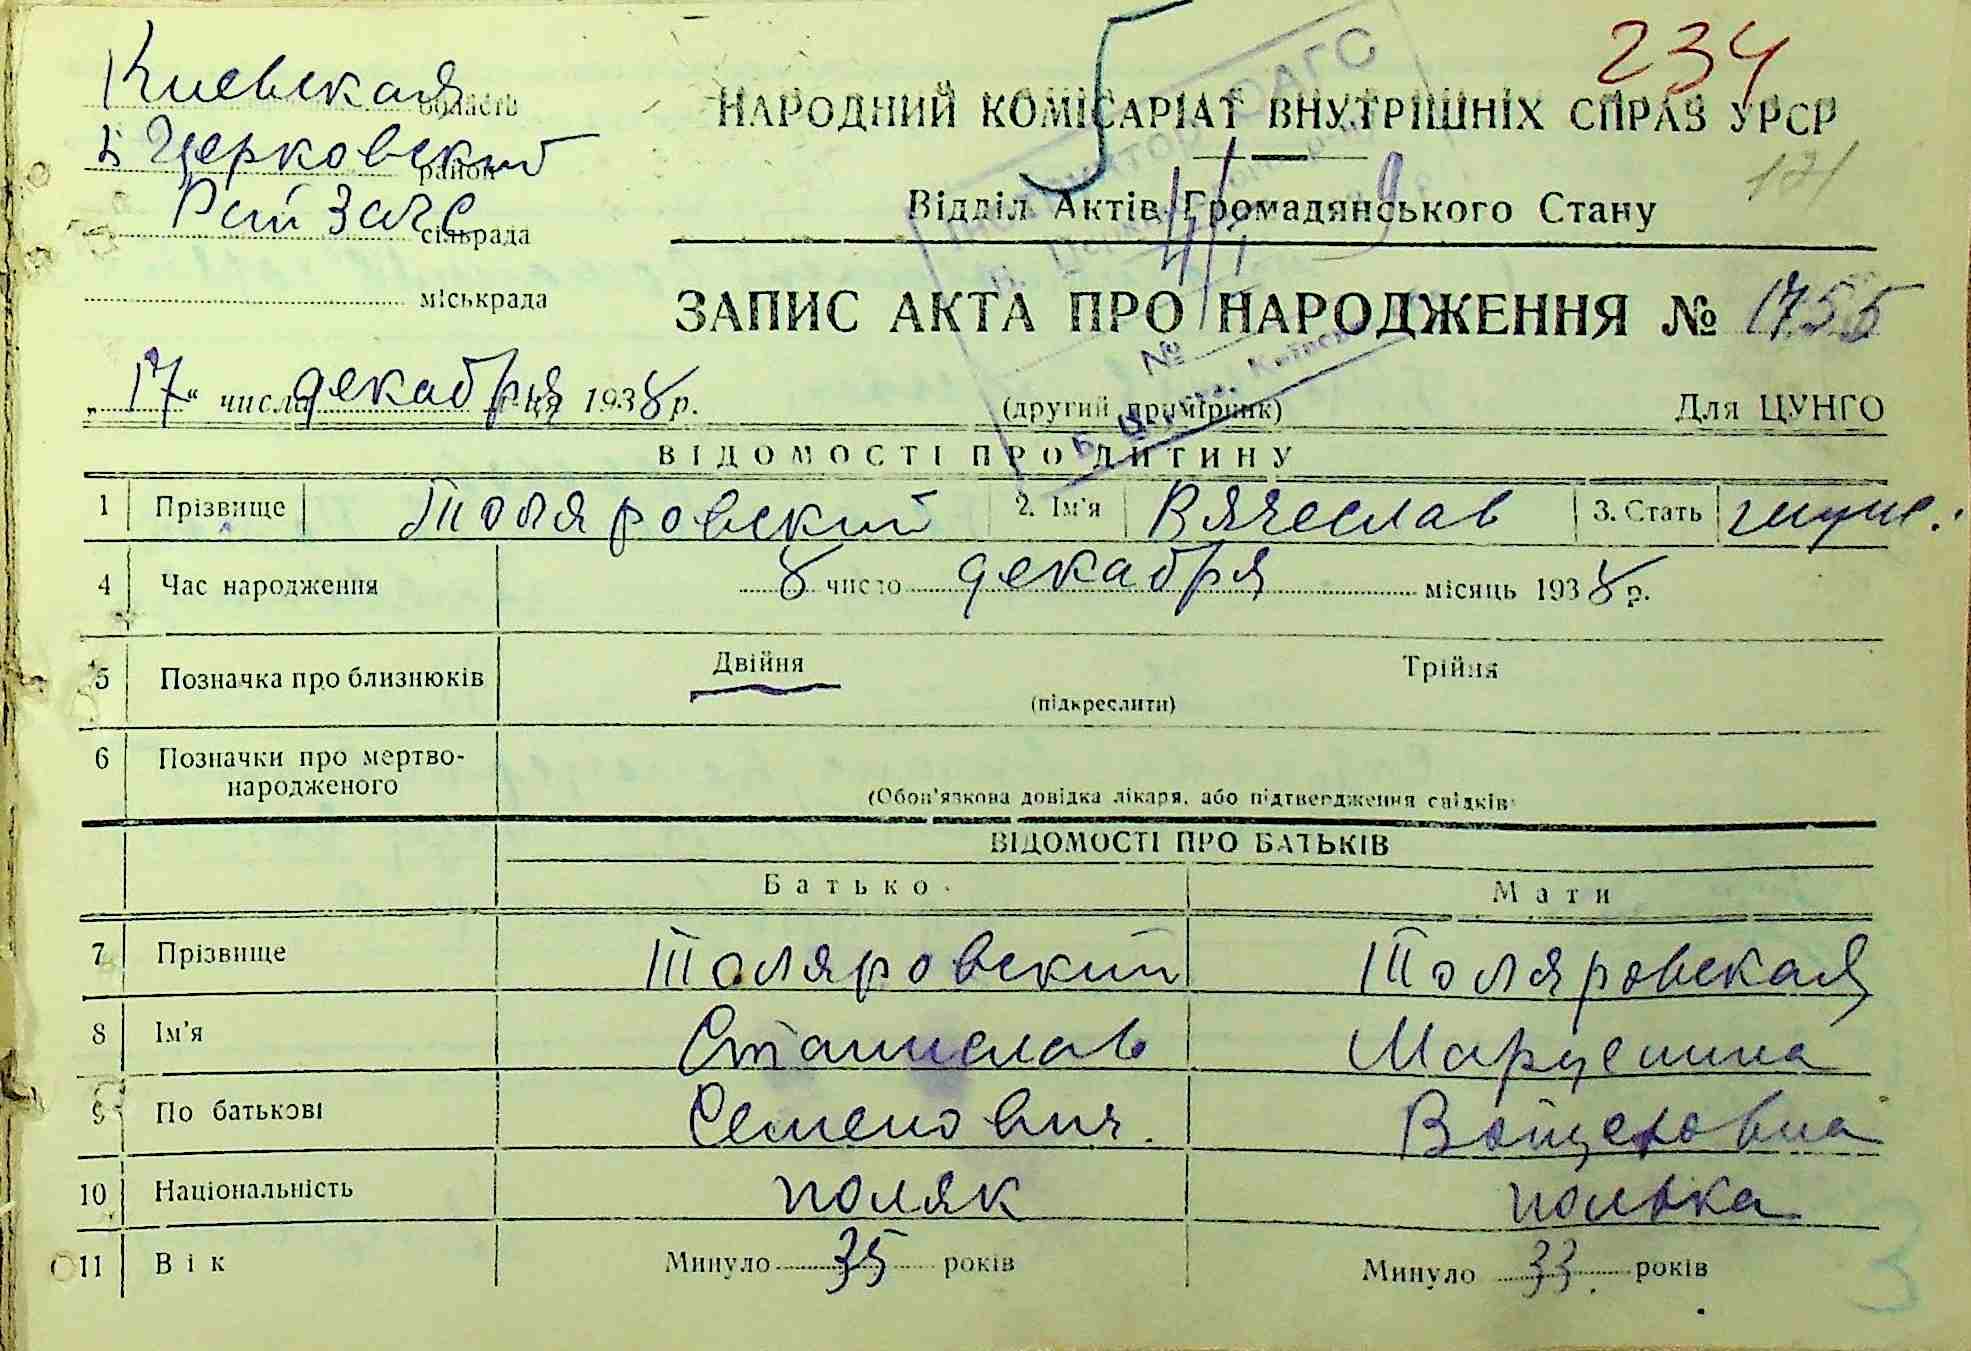 234
Киевская область
Б Церковский район
Рай Загс сільрада
міськрада
НАРОДНИЙ КОМІСАРІАТ ВНУТРІШНІХ СПРАВ УРСР
121
Відділ Актів Громадянського Стану
ЗАПИС АКТА ПРО НАРОДЖЕННЯ № 1755
„17“ числа декабря м-ця 1938 р.
(другий примірник)
Для ЦУНГО
ВІДОМОСТІ ПРО ДИТИНУ
1 Прізвище Толяровский 2. Ім'я Вячеслав 3. Стать муж.
4 Час народження 8 число декабря місяць 1938 р.
5 Позначка про близнюків Двійня Трійня
(підкреслити)
6 Позначки про мертво-
народженого
(Обов'язкова довідка лікаря, або підтвердження свідків)
ВІДОМОСТІ ПРО БАТЬКІВ
Батько Мати
7 Прізвище Толяровский Толяровская
8 Ім'я Станислав Марцелина
9 По батькові Семенович. Войцеховна
10 Національність поляк полька
11 Вік Минуло 35 років Минуло 33. років